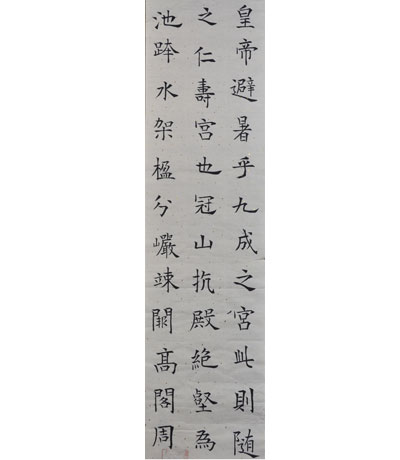 皇帝避暑乎九成之宮此則随
之仁壽宮也冠山抗殿絶壑為
池跨水架楹分巖竦闕髙閣周